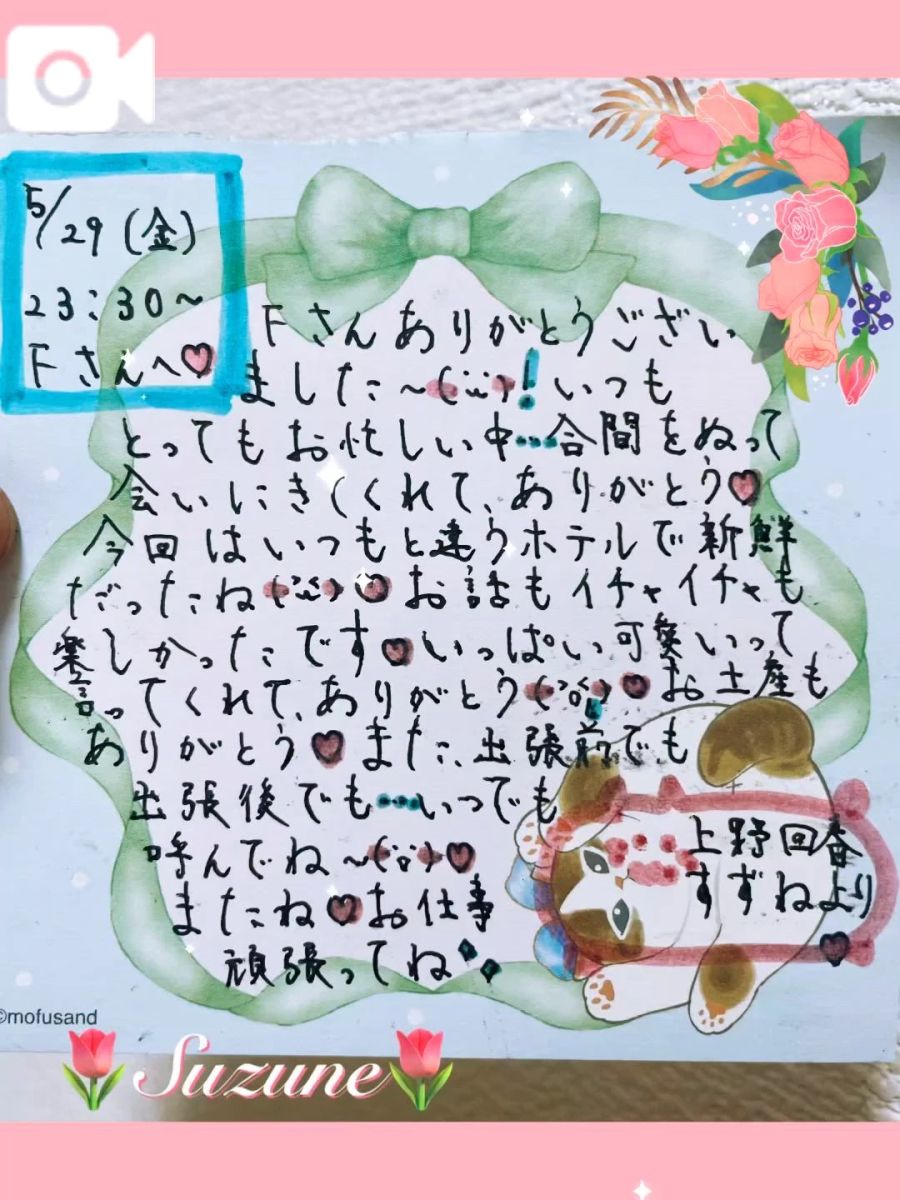 5/29(金)
23:30~
Fさんへ♡
Fさんありがとうござい
ました~(¨̮)!いつも
とってもお忙しい中…合間をぬって
会いにきてくれて、ありがとう♡
今回はいつもと違うホテルで新鮮
だったね♡お話もイチャイチャも
楽しかったです♡いっぱい可愛いって
言ってくれて、ありがとう♡お土産も
ありがとう♡また、出張前でも
出張後でも…いつでも
呼んでね~♡
またね♡お仕事
頑張ってね
上野回春
すずねより
♡
©mofusand
Suzune